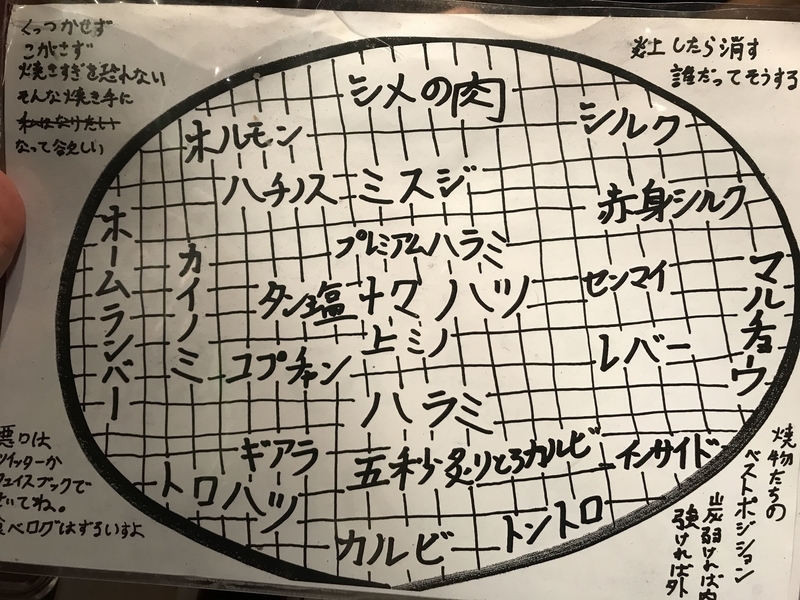 くっつかせず
こがさず
焼きすぎを恐れない
そんな焼き手に
私はなりたい
なって欲しい
炎上したら消す
誰だってそうする
シメの肉
シルク
ホルモン
ハチノス
ミスジ
赤身シルク
ホームランバー
カイノミ
プレミアムハラミ
タン塩
ナワ
ハツ
センマイ
マルチョウ
上ミノ
コプチャン
レバー
ハラミ
ギアラ
五秒炙りとろカルビ
インサイド
トロハツ
トントロ
カルビ
悪口は
ツイッターか
フェイスブックで
書いてね。
食べログはずるいすよ
焼物たちの
ベストポジション
弱ければ内
強ければ外